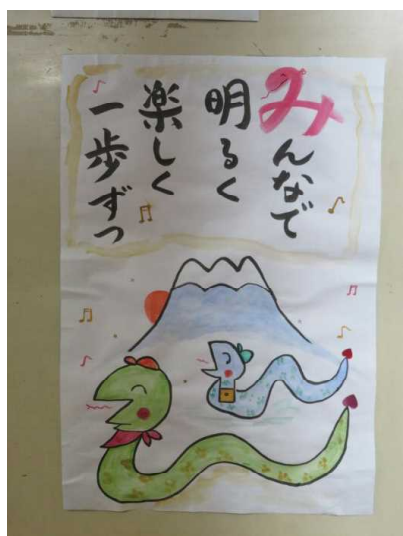 みんなで
明るく
楽しく
一歩ずつ